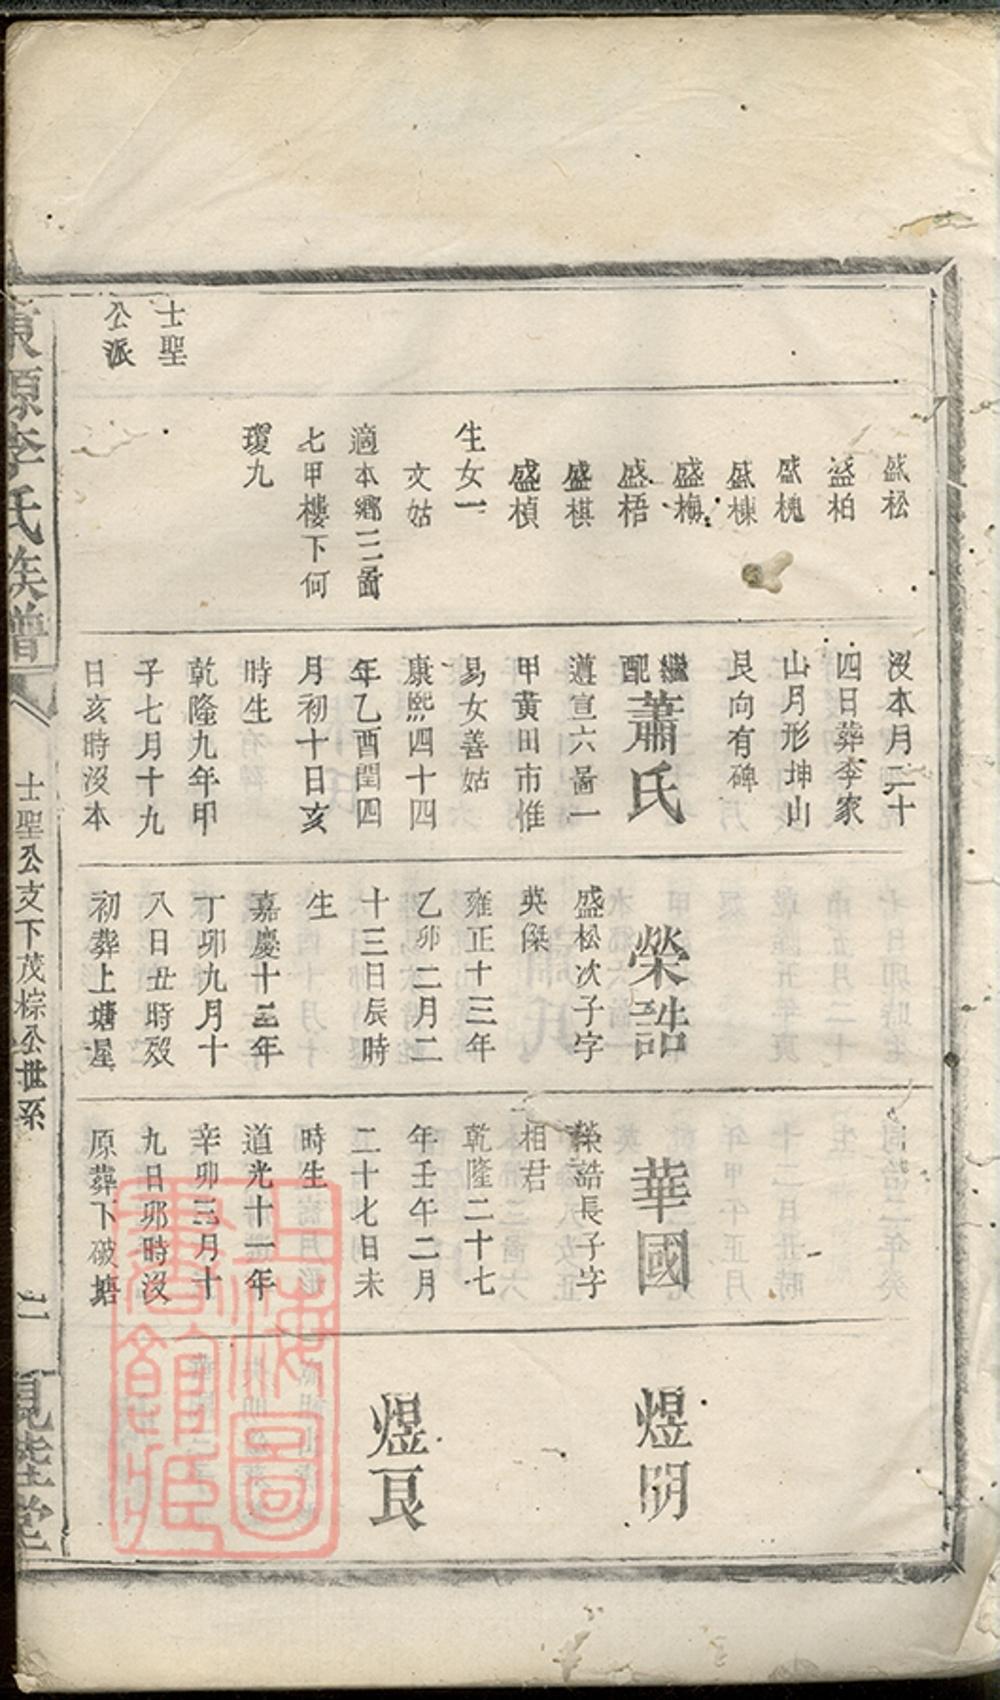 士聖
公派
盛松
盛柏
盛槐
盛棟
盛梅
盛梧
盛棋
盛楨
生女一
文姑
適本鄉三啚
七甲樓下何
瓊九
沒本月二十
四日葬李家
山月形坤山
艮向有碑
繼配蕭氏
遵宣六啚一
甲黃田市惟
易女善姑
康熙四十四
年乙酉閏四
月初十日亥
時生
乾隆九年甲
子七月十九
日亥時沒本
榮誥
盛松次子字
英傑
雍正十三年
乙卯二月二
十三日辰時
生
嘉慶十二年
丁卯九月十
八日丑時歿
初葬上塘星
華國
榮誥長子字
相君
乾隆二十七
年壬午二月
二十七日未
時生
道光十一年
辛卯三月十
九日卯時沒
原葬下破塘
煜明
煜良
東源李氏族譜
士聖公支下茂棕公世系
二
上海圖書館藏